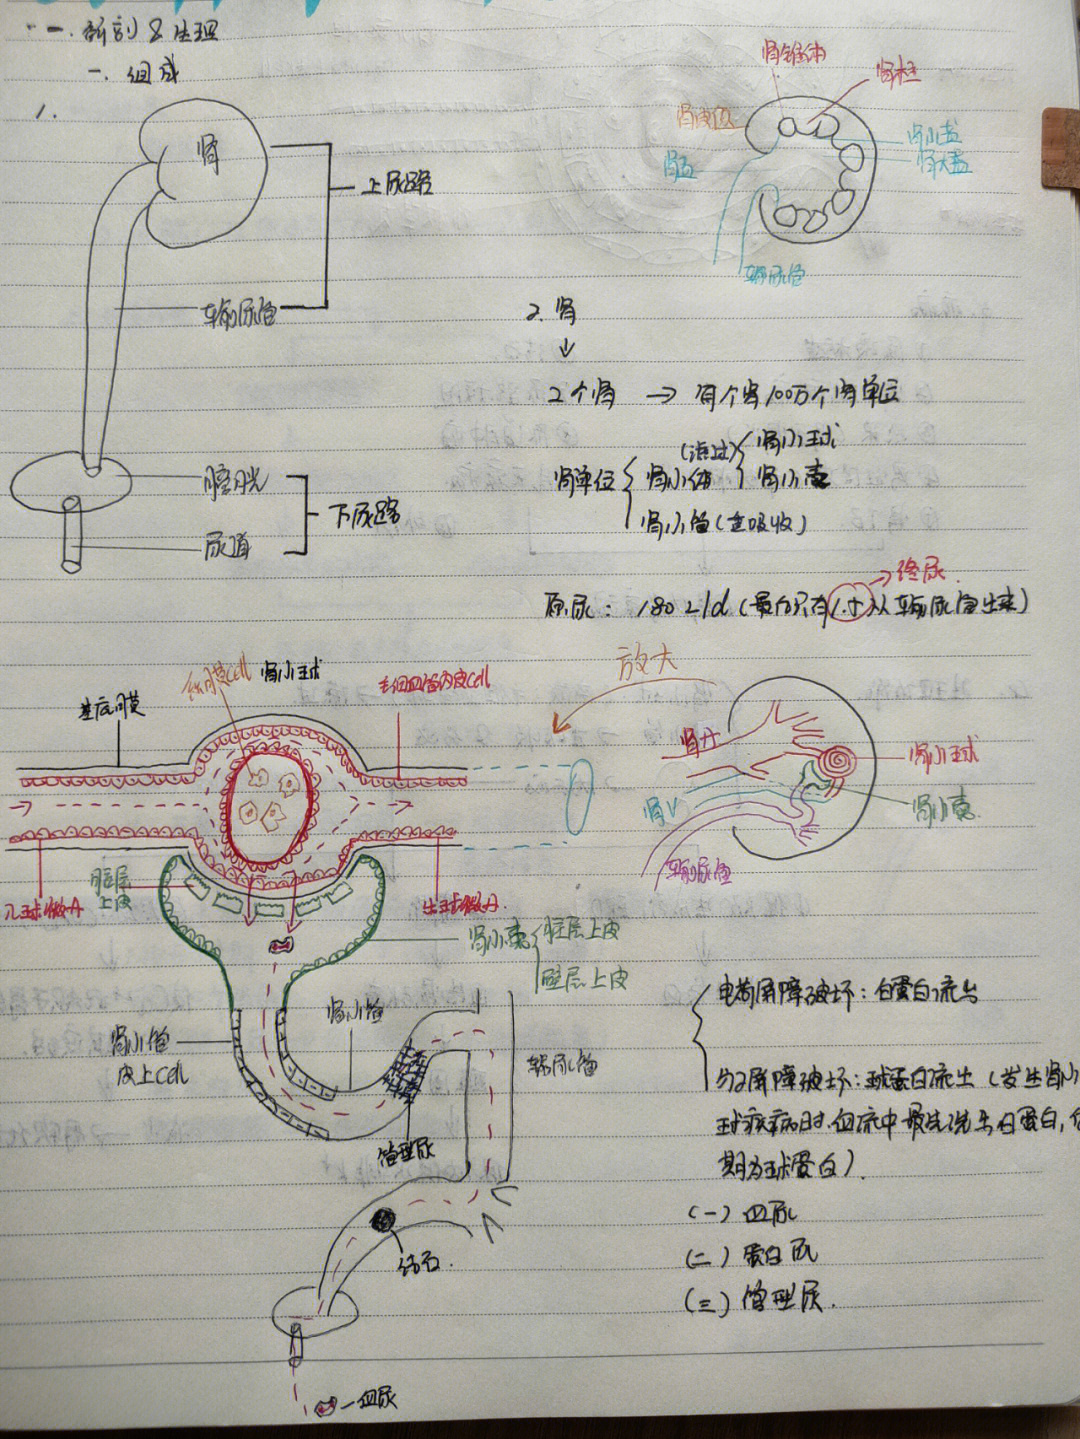 一. 解剖 & 生理
一. 组成
1.
肾
上尿路
输尿管
膀胱
下尿路
尿道
肾锥体
肾柱
肾皮质
肾小盏
肾大盏
肾盂
输尿管
2. 肾
↓
2个肾 → 每个肾100万个肾单位
肾单位
肾小体
(滤过)
肾小球
肾小囊
肾小管(重吸收)
原尿: 180 L/d (最白只有1.5从输尿管出来)
→终尿
放大
系膜cell
肾小球
毛细血管内皮cell
基底膜
入球微A
出球微A.
脏层
上皮
肾小囊
脏层上皮
壁层上皮
肾小管
皮上cell
肾小管
管型尿
输尿管
结石.
—血尿
肾A
肾V
输尿管
肾小球
肾小囊
电荷屏障破坏: 白蛋白流出
分子屏障破坏: 球蛋白流出 (发生肾小
球疾病时,血液中最先流出白蛋白,
期为球蛋白).
(一) 血尿
(二) 蛋白尿
(三) 管型尿.